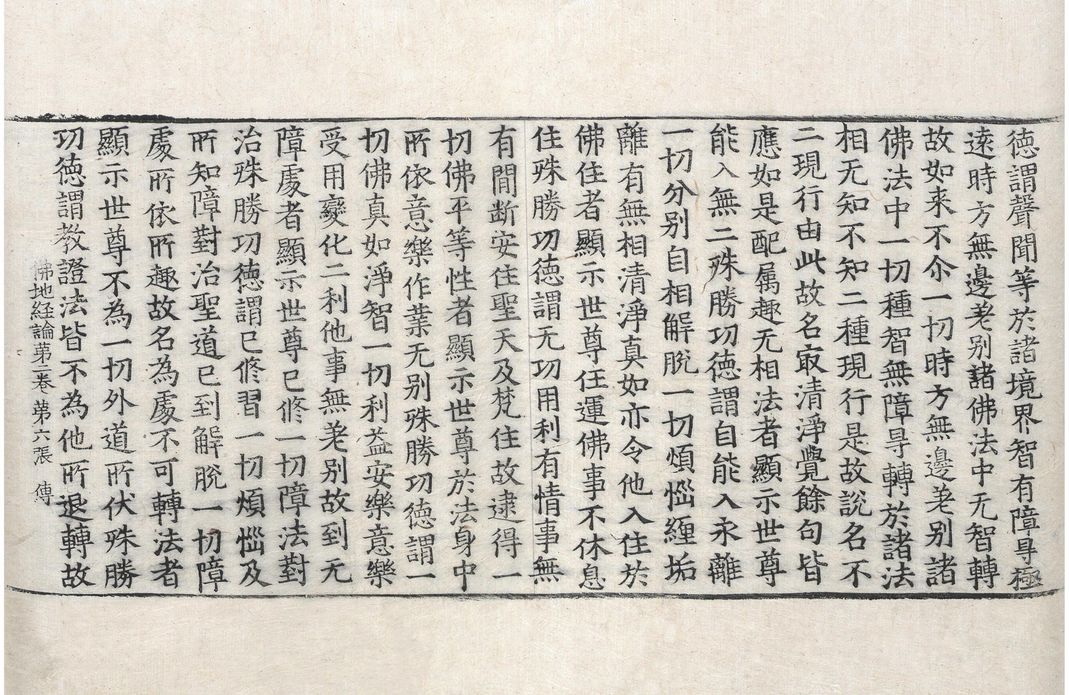 德謂聲聞等於諸境界智有障㝵極
遠時方無邊差别諸佛法中无智轉
故如来不尒一切時方無邊差别諸
佛法中一切種智無障㝵轉於諸法
相无知不知二種現行是故説名不
二現行由此故名㝡清淨覺餘句皆
應如是配属趣无相法者顯示世尊
能入無二殊勝功德謂自能入永離
一切分别自相解脫一切煩惱纏垢
離有無相清淨真如亦令他入住於
佛住者顯示世尊任運佛事不休息
住殊勝功德謂无功用利有情事無
有間断安住聖天及梵住故逮得一
切佛平等性者顯示世尊於法身中
所依意樂作業无别殊勝功德謂一
切佛真如淨智一切利益安樂意樂
受用變化二利他事無差别故到无
障處者顯示世尊已修一切障法對
治殊勝功德謂已修習一切煩惱及
所知障對治聖道已到解脫一切障
處所依所趣故名為處不可轉法者
顯示世尊不為一切外道所伏殊勝
功德謂教證法皆不為他所退轉故
佛地経論第二卷 第六張 傳